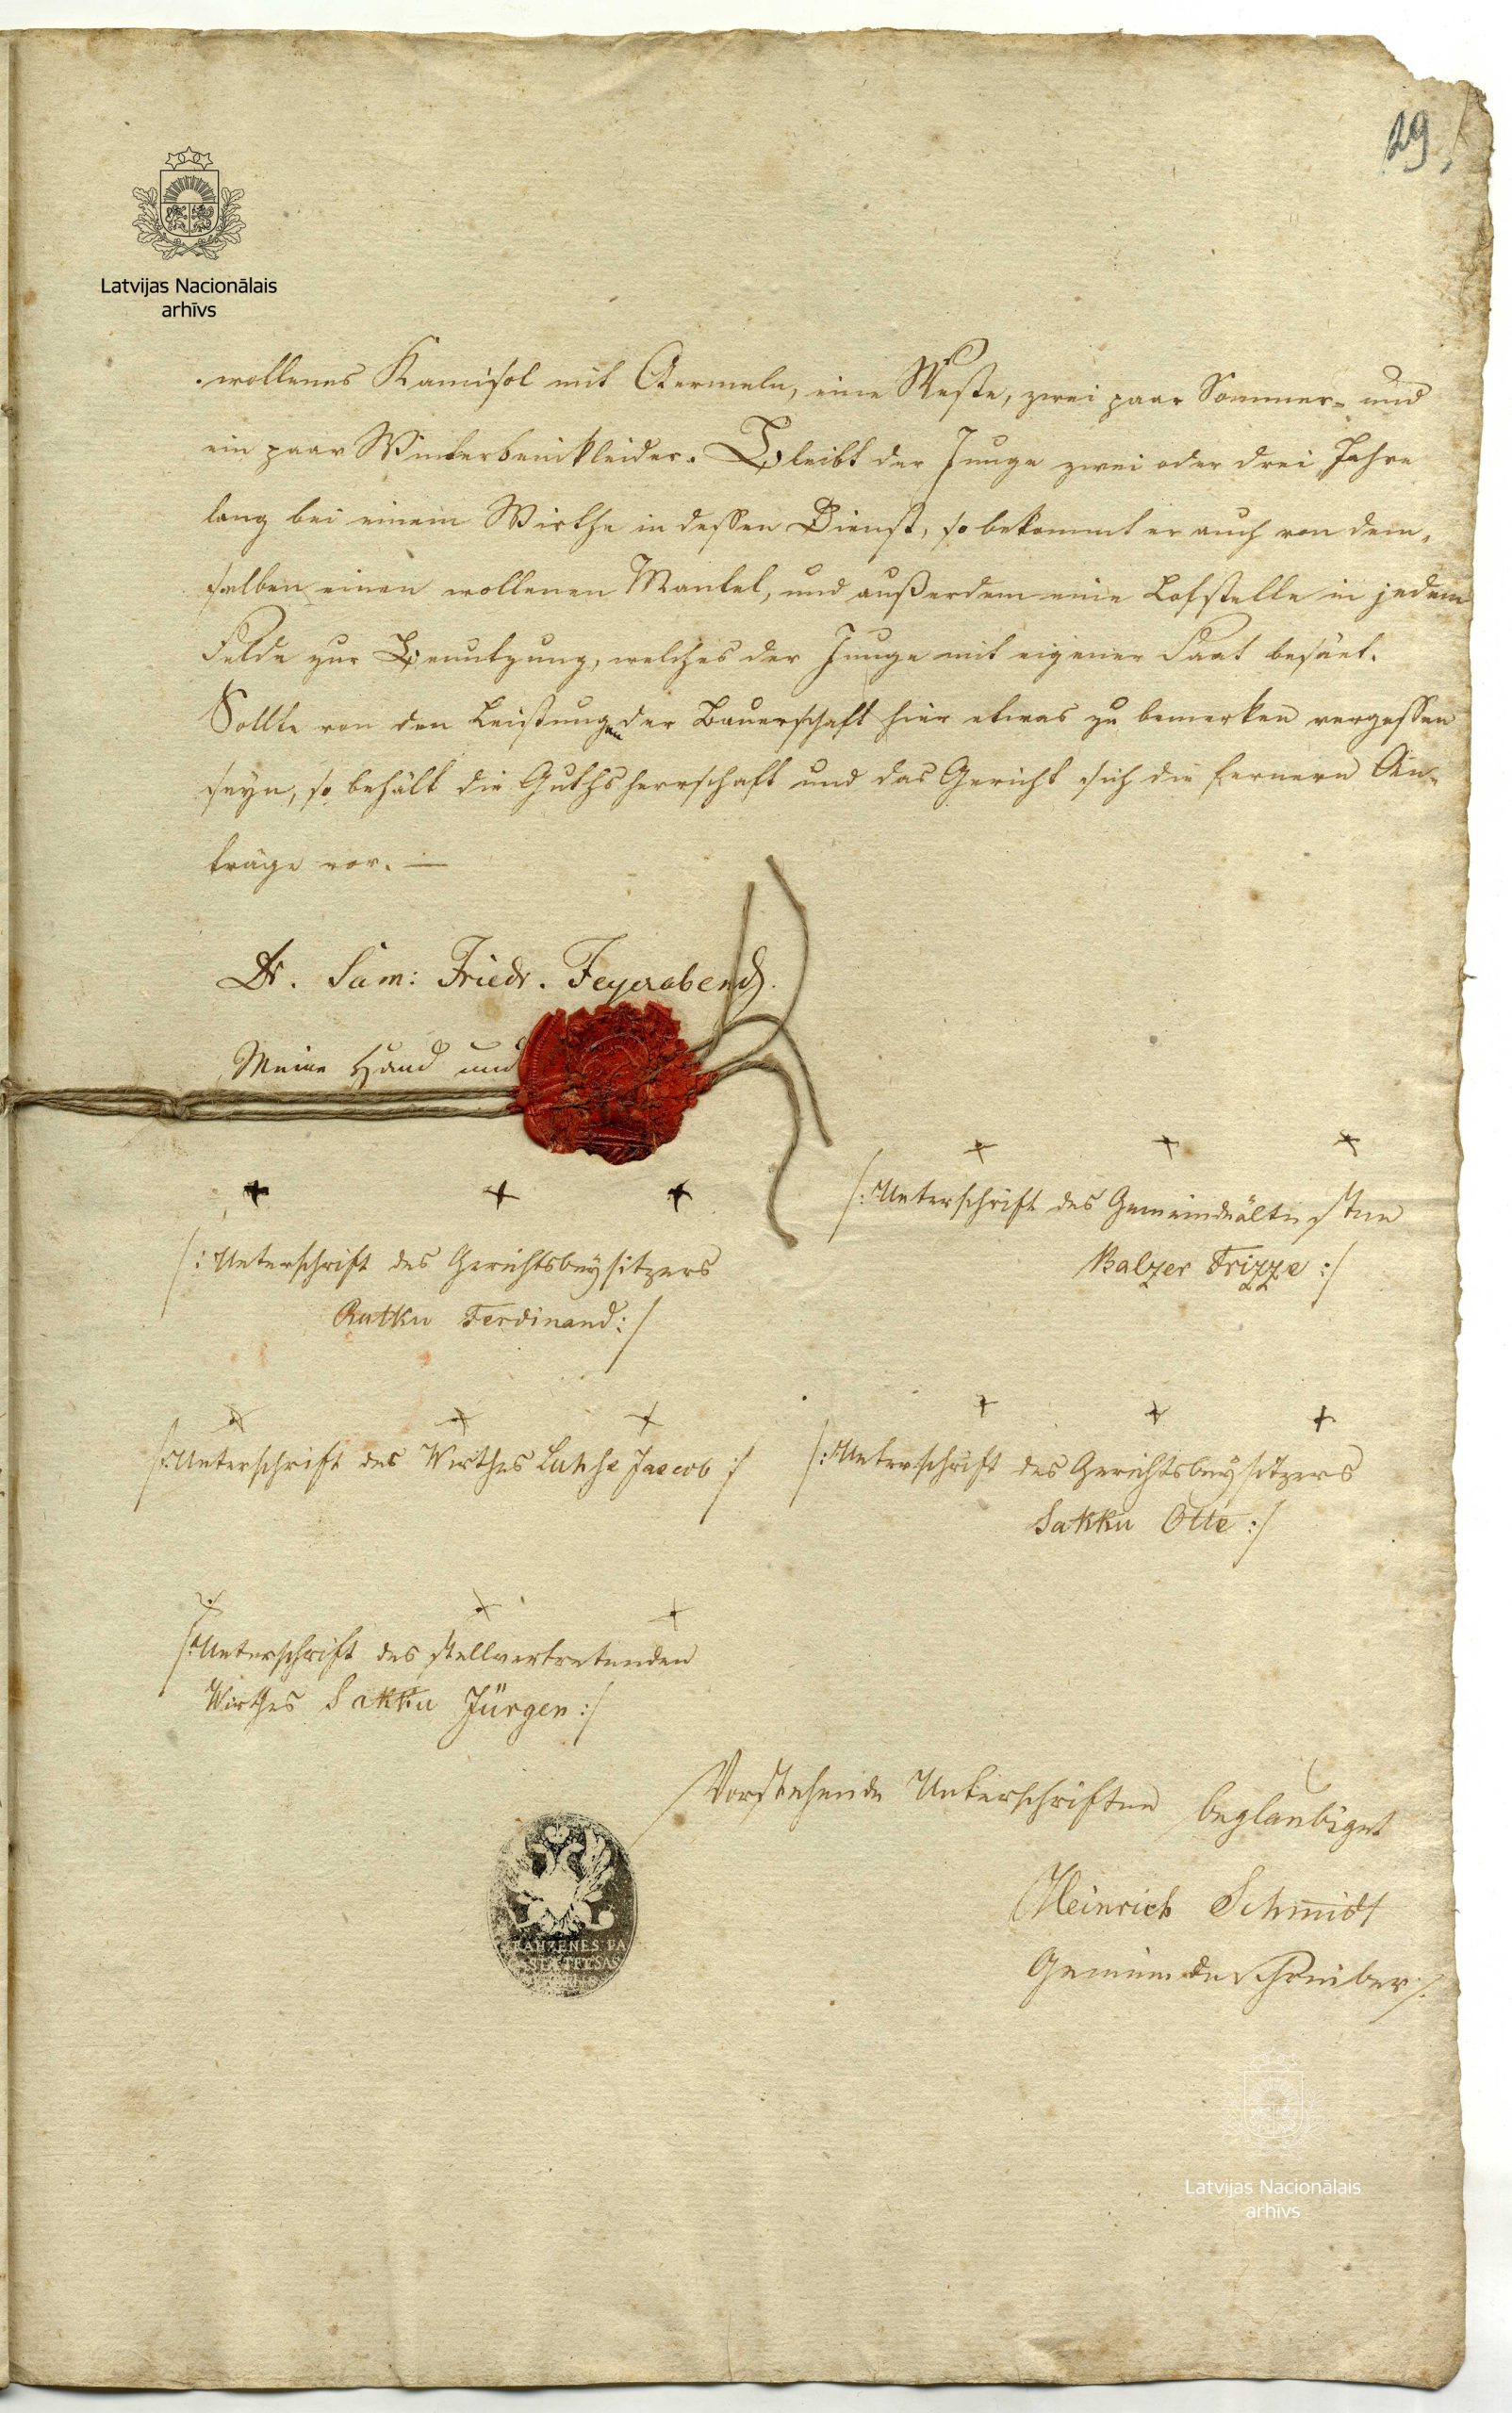 29.
Latvijas Nacionālais
arhīvs
wollenes Kamisol mit Aermeln, eine Weste, zwei paar Sommer- und
ein paar Winterbeinkleider. Bleibt der Junge zwei oder drei Jahre
lang bei einem Wirthe in dessen Dienst, so bekommt er auch von dem-
selben einen wollenen Mantel, und außerdem eine Lofstelle in jedem
Felde zur Benutzung, welches der Junge mit eigener Saat besäet.
Sollte von den Leistungen der Bauerschaft hier etwas zu bemerken vergessen
seyn, so behält die Guthsherrschaft und das Gericht sich die fernern An-
träge vor. —
Dr. Sam: Friedr. Feyerabend.
Meine Hand und
+ + +
/: Unterschrift des Gerichtsbeysitzers
Ratku Ferdinand :/
+ + +
/: Unterschrift des Gemeindeältesten
Balzer Frizze :/
+ + +
/: Unterschrift des Wirthes Jacob :/
+ + +
/: Unterschrift des Gerichtsbeysitzers
Sakku Otte :/
+ + +
/: Unterschrift des stellvertretenden
Wirthes Sakku Jürgen :/
Vorstehende Unterschriften beglaubiget
Heinrich Schmidt
Gemeindeschreiber
RAHZENES PA
Latvijas Nacionālais
arhīvs